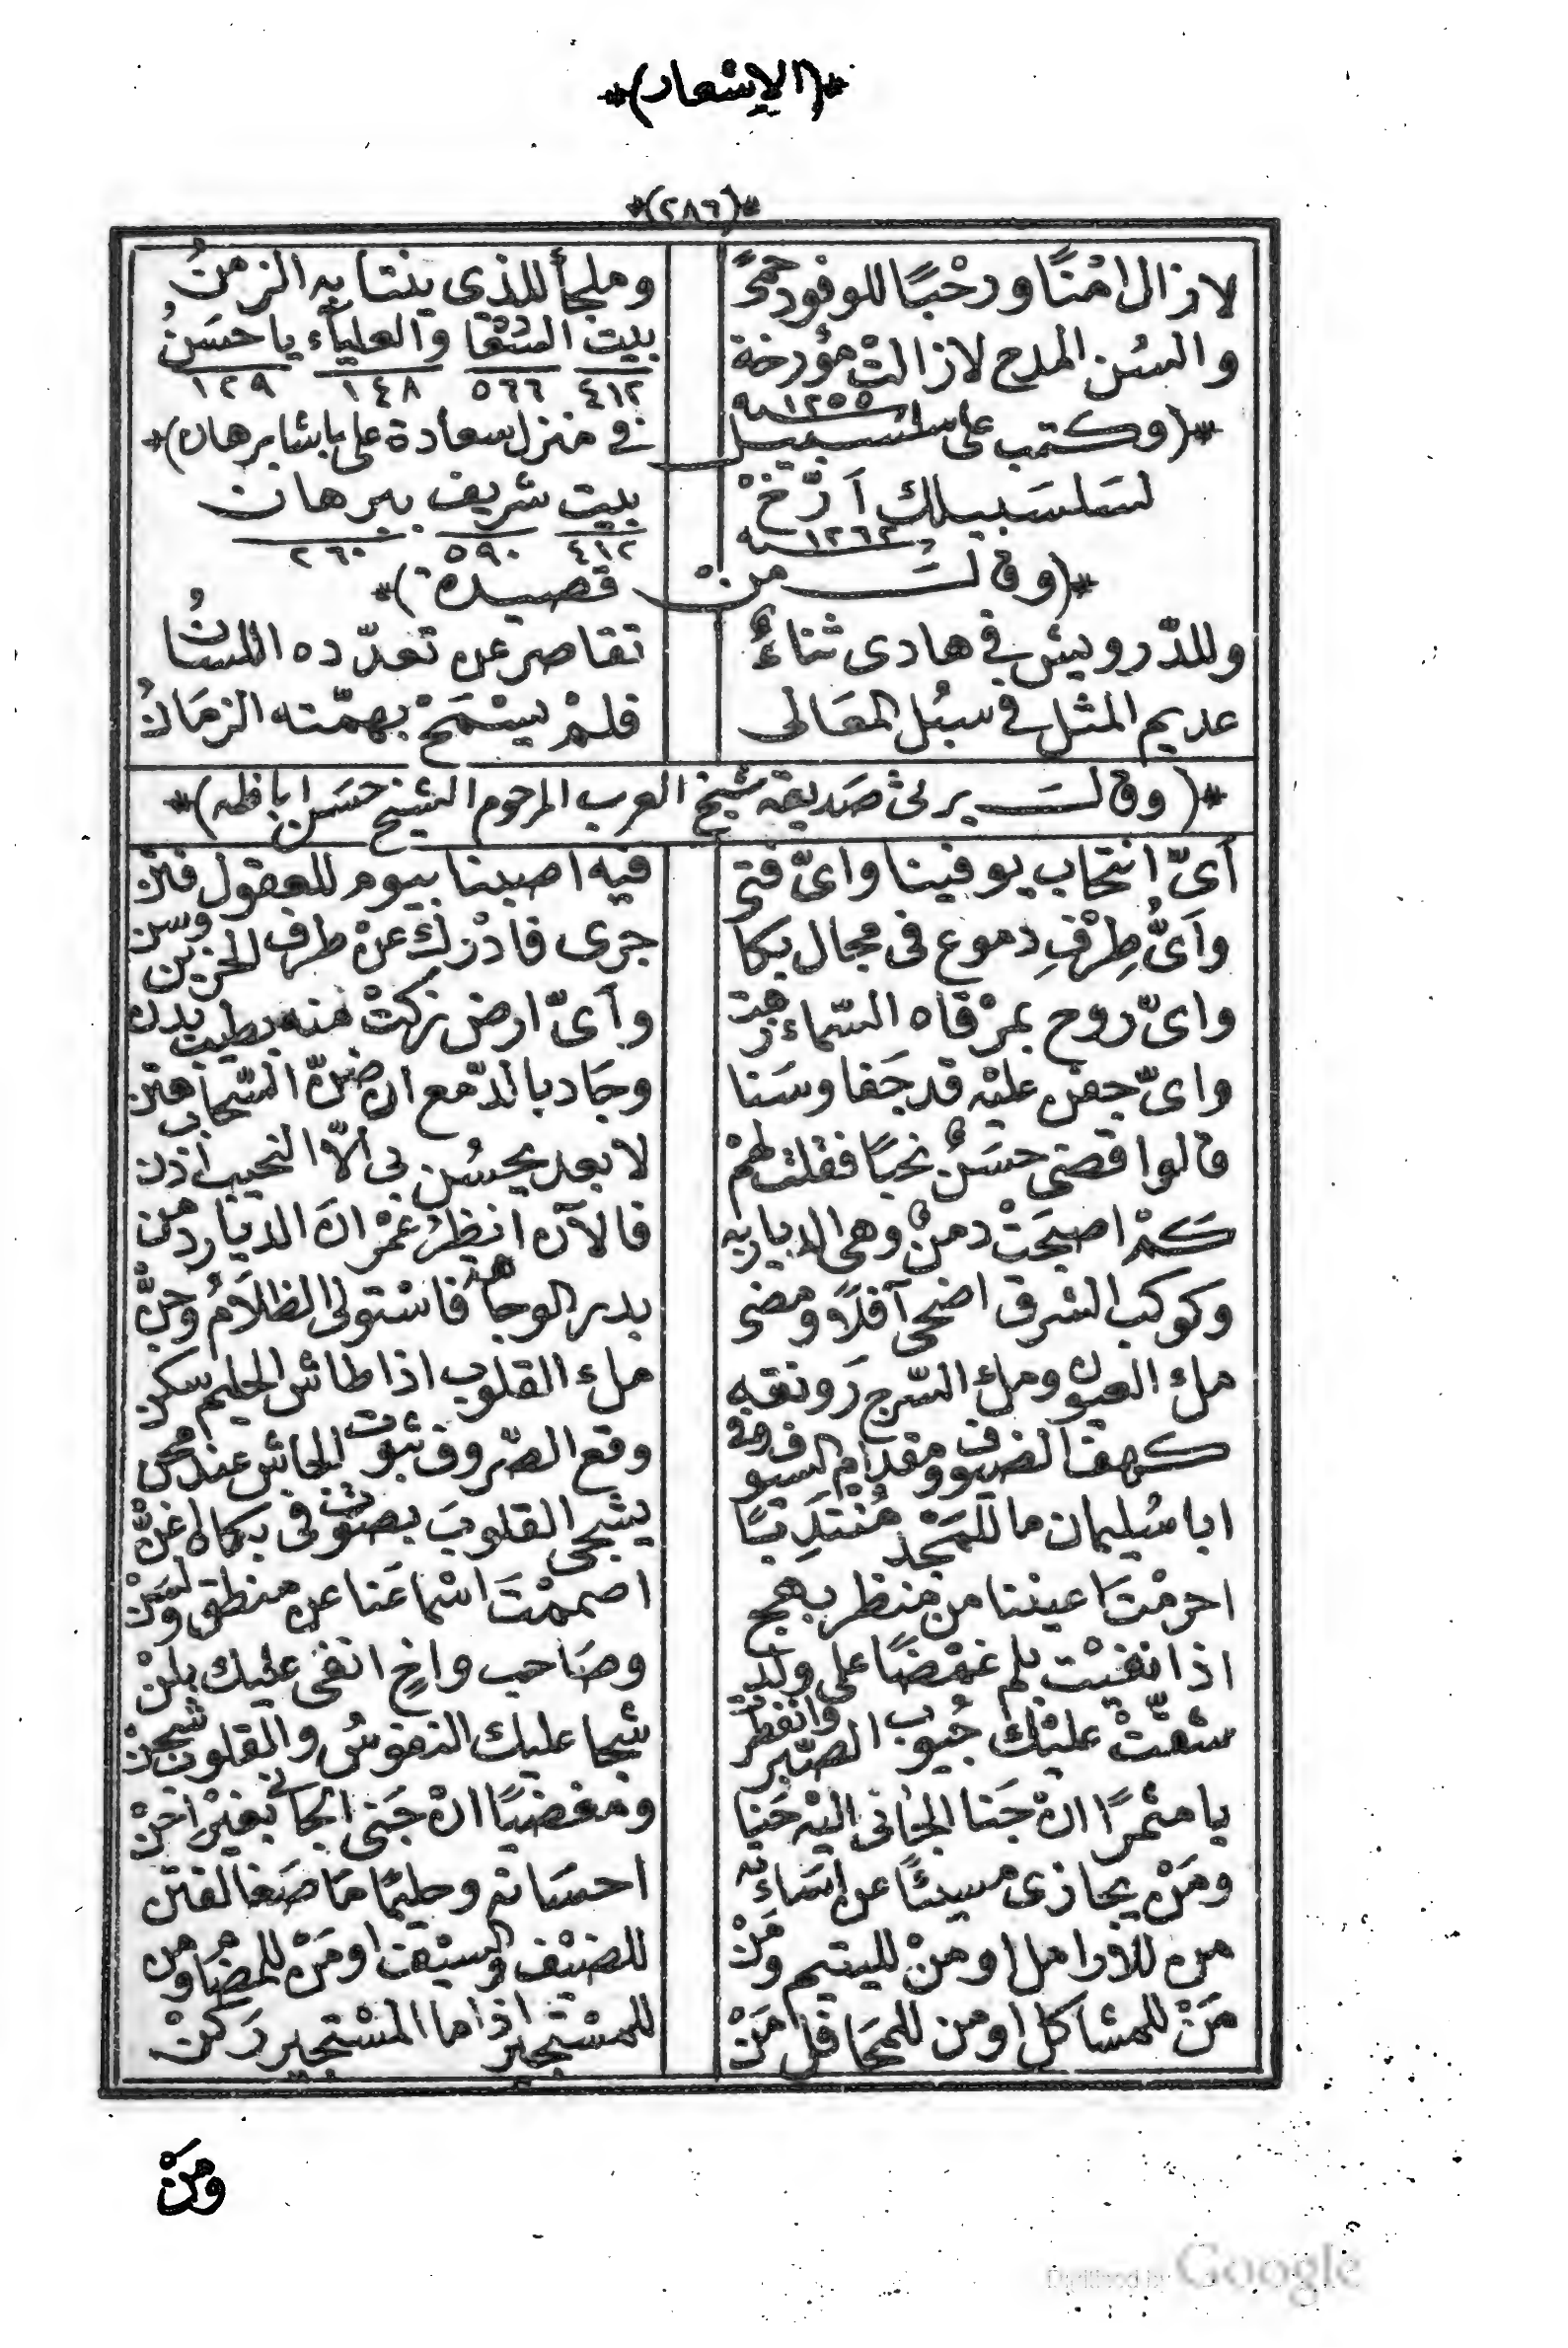 *(الإسْعاد)*
*(٢٨٦)*
لازال امْنًا ورحْبًا للوفود حمىً وملجأ للذى ينتا به الزمنُ
والسُن المدح لازالتْ مؤرخة بيت الشقا والعلياء يا حسَنُ
١٢٥٥ سنة ٤١٢ ٥٦٦ ١٤٨ ١٢٩
*(وكتب على سلسبيل فى منزل سعادة على باشا برهان)*
لسَلسَبيلك اَرّخْ بيت شريف ببرهان
١٢٦٢ سنة ٤١٢ ٥٩٠ ٢٦٠
*(وقالَــ منْ قصيدة)*
وللدّرويش فى هادى ثناءٌ تقاصر عن تعدّده اللسَانُ
عديم المثل فى سبُل المعَالى فلمْ يسْمَحْ بهمّته الزمَانُ
*(وقالــ يرثى صَديقه شيخ العرب المرحوم الشيخ حسَن اباظه)*
اَىّ انتحاب يوفينا واىّ فتى فيه اصبنا بيوم للعقول فتن
واَىُّ طِرْفِ دموع فى مجال بكا جرى فادْرَك عنْ طرف الحزين وسن
واىّ روح بمرْقاه السّماء زهت واَىّ ارض زكتْ منه بطيب بدن
واىّ جفن عليْه قد جَفا وسَنا وجَاد بالدّمع ان ضنّ السّحاب هتن
قالوا قضى حسَنٌ نحبًا فقلت لهمْ لا بعد يحسُن بى الاّ النحيب اذن
كَمْ اصبحَتْ دمنٌ وهى الديار به فالآن انظرُ عُمْران الديار دمن
وكوكب الشرق اضحى آفلاً ومضى بدر الوجاهة فاسْتولى الظلاَمُ وجنّ
ملء العيون وملء السّرج رَونقه ملء القلوب اذا طاش الحليم سكن
كهف الضيوف ومقدام السيوف فى وقع الصّروف ثبوت الجاش عند محن
ابا سُليمان ما للمَجْد مُنْتَدِبًا يشجى القلوبَ بصَوْت فى بكاه اغنّ
احرمْتَ اعيننا من منظر بهج اصممْتَ اسْماعَنا عن منطق ولسَنْ
اذا نفيْت بلم غمْضًا على ولد وصَاحب واخٍ انفى عليْك بلنْ
شقّتْ عليْك جيُوب الصّبر وانفطرَتْ شجا عليك النفوسُ والقلوبُ شجنْ
يا مثمرًا انْ جَنا الجانى اليْه حَنا ومغضيًا انْ جَنى الجانى بغيْر احَنْ
ومَنْ يجازى مسيئًا عن اسَاءته احسَانه وحليمًا مَا صَغا لفتن
من للارامل او منْ لليتيم ومَنْ للضيْف والسيْف او مَنْ للمضا ومن
مَنْ للمشاكل او من للمحَافل مَنْ للمسْتجير اذا ما المسْتجير رَكنْ
ومَنْ
Digitized by Google